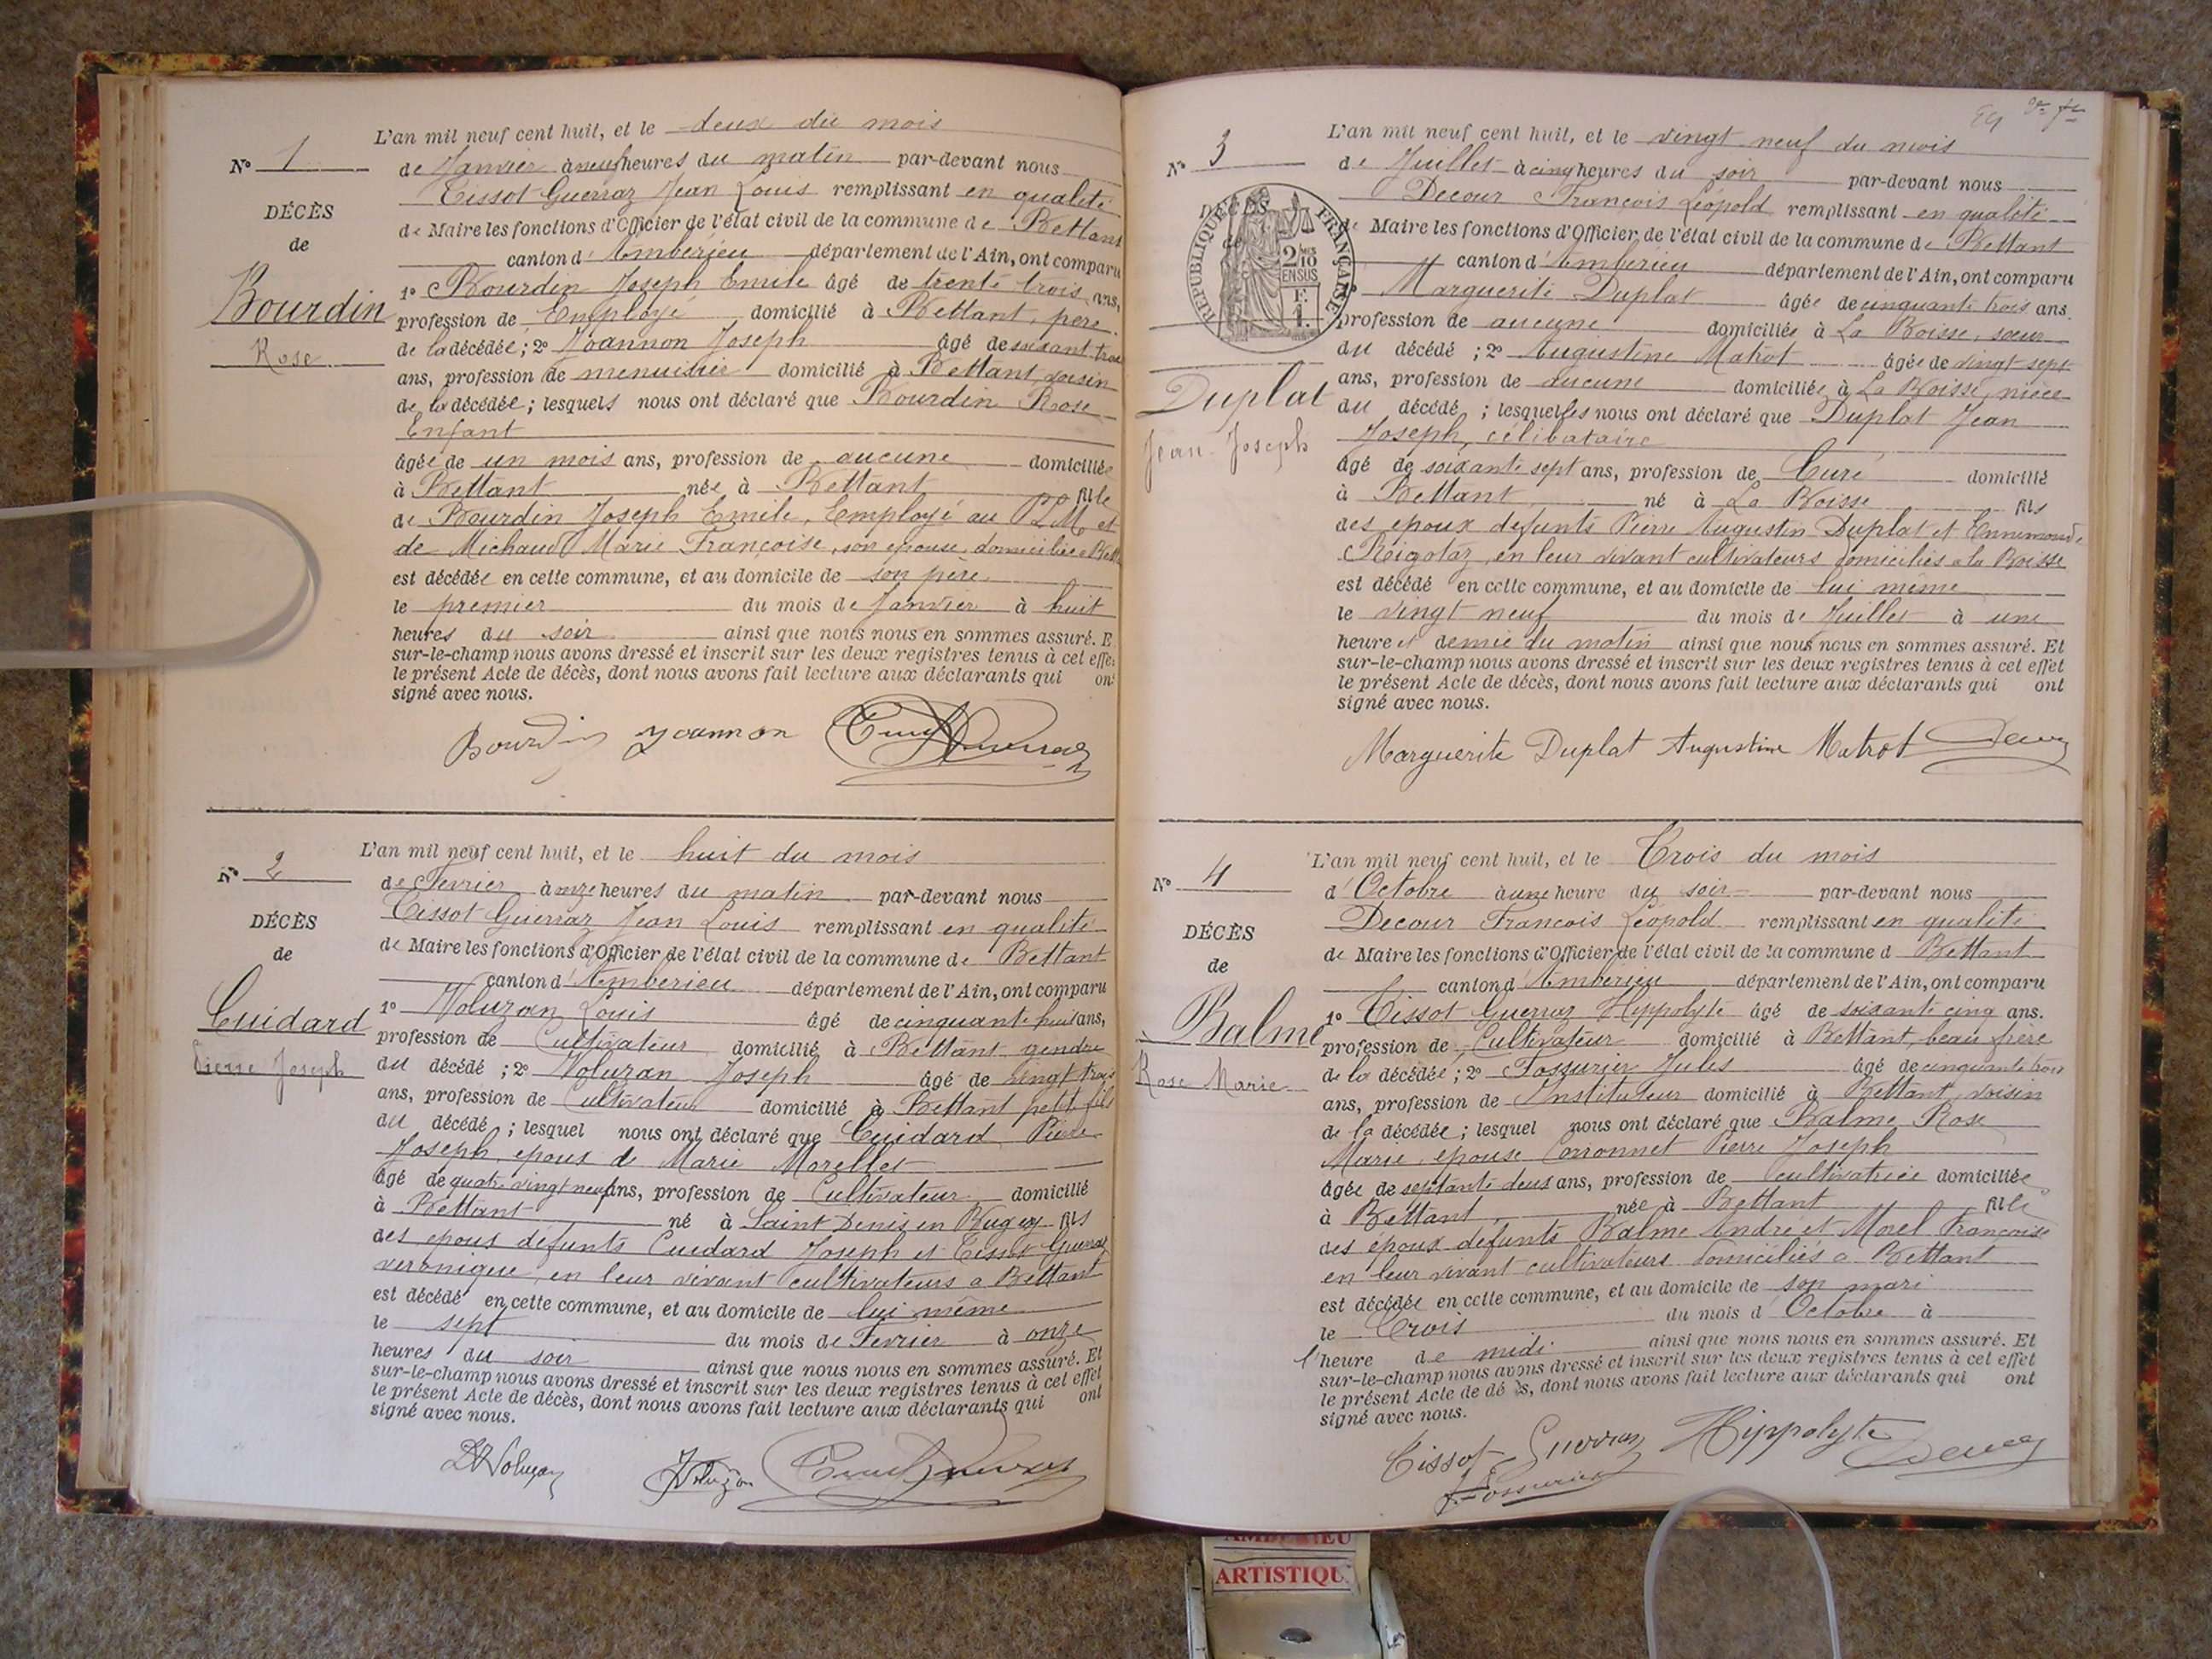 L'an mil neuf cent huit, et le deux du mois
N° 1
de Janvier à neuf heures du matin par-devant nous
Tissot Guerraz Jean Louis remplissant en qualité
DÉCÈS
de Maire les fonctions d'Officier de l'état civil de la commune de Bettant
de
canton d'Ambérieu département de l'Ain, ont comparu
Bourdin
1° Bourdin Joseph Emile âgé de trente trois ans,
profession de Employé domicilié à Bettant, père
Rose
de la décédée ; 2° Joannon Joseph âgé de soixant trois
ans, profession de menuisier domicilié à Bettant, voisin
de la décédée ; lesquels nous ont déclaré que Bourdin Rose
Enfant
âgée de un mois ans, profession de aucune domiciliée
à Bettant née à Bettant fille
de Bourdin Joseph Emile, Employé au PLM et
de Michaud Marie Françoise, son epouse, domiciliée
est décédée en cette commune, et au domicile de son père
le premier du mois de Janvier à huit
heures du soir ainsi que nous nous en sommes assuré. E
sur-le-champ nous avons dressé et inscrit sur les deux registres tenus à cet effe
le présent Acte de décès, dont nous avons fait lecture aux déclarants qui ont
signé avec nous.
Bourdin Joannon
L'an mil neuf cent huit, et le huit du mois
N° 2
de Fevrier à onze heures du matin par-devant nous
Tissot Guerraz Jean Louis remplissant en qualité
DÉCÈS
de Maire les fonctions d'Officier de l'état civil de la commune de Bettant
de
canton d'Ambérieu département de l'Ain, ont comparu
Cuidard
1° Voluzan Louis âgé de cinquante huit ans,
profession de Cultivateur domicilié à Bettant gendre
Pierre Joseph
du décédé ; 2° Voluzan Joseph âgé de vingt trois
ans, profession de Cultivateur domicilié à Bettant petit fils
du décédé ; lesquel nous ont déclaré que Cuidard Pierre
Joseph, epous de Marie Morellet
âgé de quatre vingt neuf ans, profession de Cultivateur domicilié
à Bettant né à Saint Denis en Bugey fils
des epous défunts Cuidard Joseph et Tissot Guerraz
veronique, en leur vivant cultivateurs a Bettant
est décédé en cette commune, et au domicile de lui même
le sept du mois de Fevrier à onze
heures du soir ainsi que nous nous en sommes assuré. Et
sur-le-champ nous avons dressé et inscrit sur les deux registres tenus à cet effet
le présent Acte de décès, dont nous avons fait lecture aux déclarants qui ont
signé avec nous.
Voluzan
L'an mil neuf cent huit, et le vingt neuf du mois
N° 3
de Juillet à cinq heures du soir par-devant nous
Decour François Léopold remplissant en qualité
RÉPUBLIQUE FRANÇAISE
2/10 EN SUS
de Maire les fonctions d'Officier de l'état civil de la commune de Bettant
canton d'Ambérieu département de l'Ain, ont comparu
Marguerite Duplat âgée de cinquante trois ans.
profession de aucune domiciliée à La Boisse, sœur
du décédé ; 2° Augustine Matrot âgée de vingt sept
Duplat
ans, profession de aucune domiciliée à La Boisse, nièce
du décédé ; lesquelles nous ont déclaré que Duplat Jean
Jean Joseph
Joseph, célibataire
âgé de soixante sept ans, profession de Curé domicilié
à Bettant né à La Boisse fils
des epoux defunts Pierre Augustin Duplat et Ennemonde
en leur vivant cultivateurs domiciliés a la Boisse
est décédé en cette commune, et au domicile de lui même
le vingt neuf du mois de Juillet à une
heure et demie du matin ainsi que nous nous en sommes assuré. Et
sur-le-champ nous avons dressé et inscrit sur les deux registres tenus à cet effet
le présent Acte de décès, dont nous avons fait lecture aux déclarants qui ont
signé avec nous.
Marguerite Duplat Augustine Matrot
L'an mil neuf cent huit, et le Trois du mois
N° 4
d'Octobre à une heure du soir par-devant nous
Decour Francois Léopold remplissant en qualité
DÉCÈS
de Maire les fonctions d'Officier de l'état civil de la commune d Bettant
de
canton d'Ambérieu département de l'Ain, ont comparu
Balme
1° Tissot Guerraz Hippolyte âgé de soixante cinq ans.
profession de Cultivateur domicilié à Bettant, beau frère
Rose Marie
de la décédée ; 2° Fossurier Jules âgé de cinquante trois
ans, profession de Instituteur domicilié à Bettant, voisin
de la décédée ; lesquel nous ont déclaré que Balme Rose
Marie, epouse Corronnet Pierre Joseph
âgée de septante deux ans, profession de cultivatrice domiciliée
à Bettant née à Bettant fille
des époux defunts Balme André et Morel Françoise
en leur vivant cultivateurs domiciliés a Bettant
est décédée en cette commune, et au domicile de son mari
le Trois du mois d'Octobre à
l'heure de midi ainsi que nous nous en sommes assuré. Et
sur-le-champ nous avons dressé et inscrit sur les deux registres tenus à cet effet
le présent Acte de dé ès, dont nous avons fait lecture aux déclarants qui ont
signé avec nous.
Tissot Guerraz Hippolyte
Fossurier
ARTISTIQU